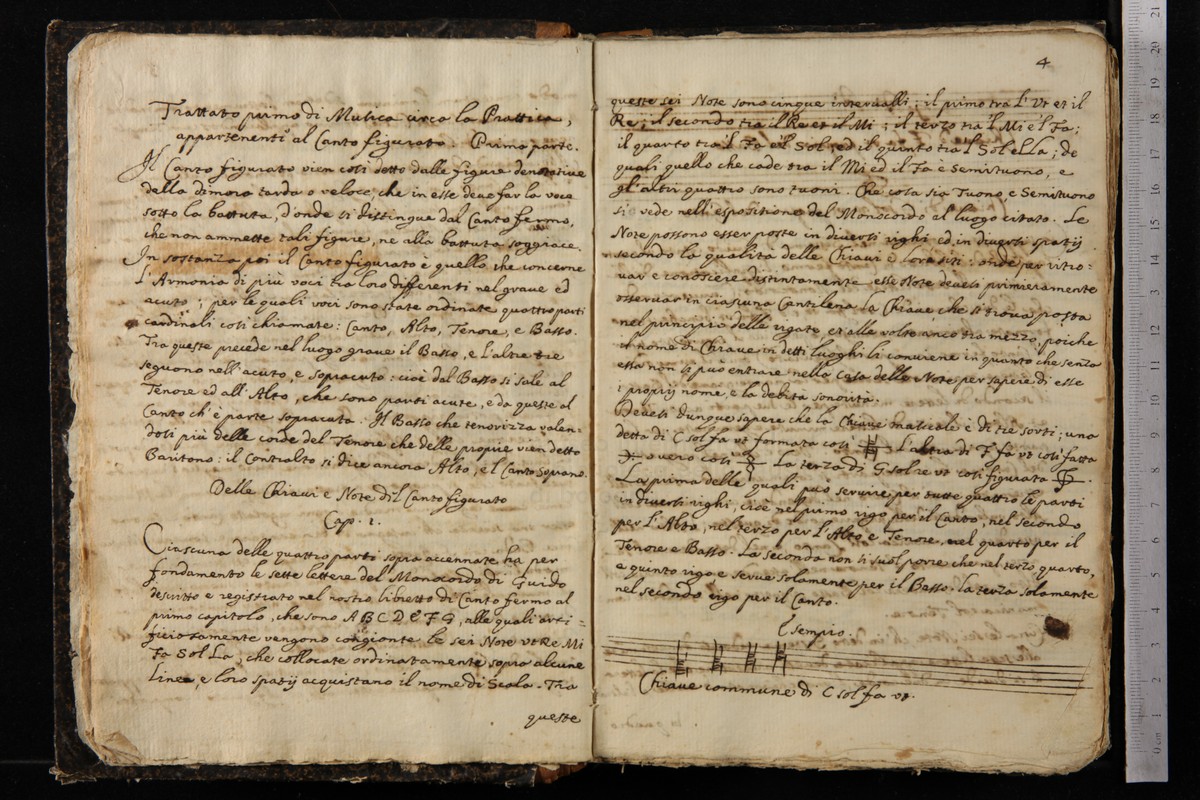 Trattato primo di Musica circa la Prattica,
appartenente al Canto figurato. Prima parte.
Il Canto figurato vien così detto dalle figure denotative
della dimora tarda o veloce, che in esse deue far la voce
sotto la battuta, d'onde si distingue dal Canto fermo,
che non ammette tali figure, ne alla battuta soggiace.
In sostanza poi il Canto figurato è quello, che concerne
L'Armonia di più voci tra loro differenti nel graue ed
acuto; per le quali voci sono state ordinate quattro parti
cardinali così chiamate: Canto, Alto, Tenore, e Basso.
Tra queste precede nel luogo graue il Basso, e l'altre tre
seguono nell'acuto, e sopracuto: cioè dal Basso si sale al
Tenore ed all'Alto, che sono parti acute, e da queste al
Canto ch'è parte sopracuta. Il Basso che tenorizza valen-
dosi più delle corde del Tenore che delle proprie vien detto
Baritono: il Contralto si dice ancora Alto, e'l Canto Soprano.
Delle Chiaui e Note dil Canto figurato
Cap. 1.
Ciascuna delle quattro parti sopra accennate ha per
fondamento le sette lettere del Monocordo di Guido
descritto e registrato nel nostro libretto di Canto fermo al
primo capitolo, che sono A B C D E F G, alle quali arti-
ficiosamente vengono congionte le sei Note Vt Re Mi
Fa Sol La, che collocate ordinatamente sopra alcune
Linee, e loro spatij acquistano il nome di Scala. Tra
queste
4
queste sei Note sono cinque intervalli; il primo tra l'Vt et il
Re; il secondo tra il Re et il Mi; il terzo tra il Mi e'l Fa;
il quarto tra il Fa e'l Sol; ed il quinto tra'l Sol e'l La; de
quali quello che cade tra il Mi ed il Fa è Semituono, e
gl'altri quattro sono tuoni. Che cosa sia Tuono, e Semituono
si vede nell'espositione del Monocordo al luogo citato. Le
Note possono esser poste in diuersi righi ed in diuersi spatij
secondo la qualità delle Chiaui e loro siti: onde per ritro-
uar e conoscere distintamente esse Note deuesi primieramente
osseruar in ciascuna Cantilena la Chiaue che si troua posta
nel principio delle rigate, et alle volte anco tra mezzo, poiche
il nome di Chiaue in detti luoghi li conuiene in quanto che senza
essa non si può entrare nella Casa delle Note per sapere di esse
i proprij nome, e la debita sonorità.
Deuesi dunque sapere che la Chiaue musicale è di tre sorti; una
detta di C sol fa vt formata così L'altra di F fa vt così fatta
overo così La terza di G sol re vt così figurata
La prima delle quali può seruire per tutte quattro le parti
in diuersi righi, cioè nel primo rigo per il Canto, nel secondo
per L'Alto, nel terzo per L'Alto e Tenore, nel quarto per il
Tenore e Basso. La seconda non si suol porre che nel terzo quarto,
e quinto rigo e serue solamente per il Basso: la terza solamente
nel secondo rigo per il Canto.
Esempio.
Chiaue commune di C sol fa vt.